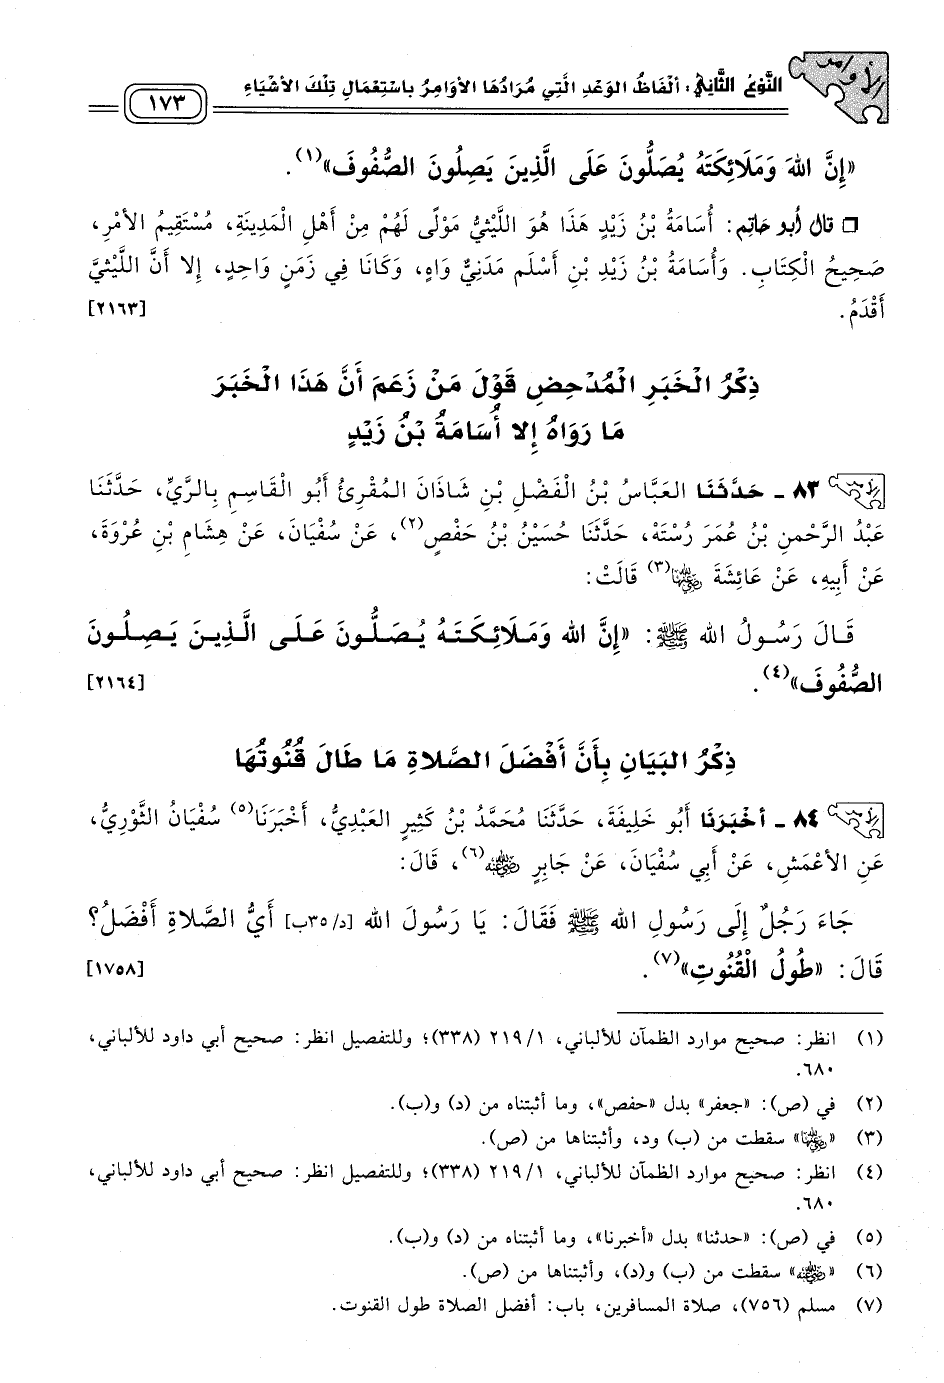 الأوامر
النَّوْعُ الثَّانِي: ألْفَاظُ الوَعْدِ الَّتِي مُرَادُهَا الأوَامِرُ بِاسْتِعْمَالِ تِلْكَ الأشْيَاءِ
١٧٣
«إِنَّ اللهَ وَمَلَائِكَتَهُ يُصَلُّونَ عَلَى الَّذِينَ يَصِلُونَ الصُّفُوفَ»(١).
❑ قال أبو حاتِم: أُسَامَةُ بْنُ زَيْدٍ هَذَا هُوَ اللَّيْثِيُّ مَوْلًى لَهُمْ مِنْ أَهْلِ الْمَدِينَةِ، مُسْتَقِيمُ الأمْرِ،
صَحِيحُ الْكِتَابِ. وَأُسَامَةُ بْنُ زَيْدِ بْنِ أَسْلَم مَدَنِيٌّ وَاهٍ، وَكَانَا فِي زَمَنٍ وَاحِدٍ، إِلا أَنَّ اللَّيْثِيَّ
أَقْدَمُ. [٢١٦٣]
ذِكْرُ الْخَبَرِ الْمُدْحِضِ قَوْلَ مَنْ زَعَمَ أَنَّ هَذَا الْخَبَرَ
مَا رَوَاهُ إِلا أُسَامَةُ بْنُ زَيْدٍ
٨٣ - حَدَّثَنَا العَبَّاسُ بْنُ الْفَضْلِ بْنِ شَاذَانَ المُقْرِئُ أَبُو الْقَاسِمِ بِالرَّيِّ، حَدَّثَنَا
عَبْدُ الرَّحْمنِ بْنُ عُمَرَ رُسْتَهْ، حَدَّثَنَا حُسَيْنُ بْنُ حَفْصٍ(٢)، عَنْ سُفْيَانَ، عَنْ هِشَامِ بْنِ عُرْوَةَ،
عَنْ أَبِيهِ، عَنْ عَائِشَةَ رضي الله عنها(٣) قَالَتْ:
قَالَ رَسُولُ الله ﷺ: «إِنَّ الله وَمَلَائِكَتَهُ يُصَلُّونَ عَلَى الَّذِينَ يَصِلُونَ
الصُّفُوفَ»(٤). [٢١٦٤]
ذِكْرُ البَيَانِ بِأَنَّ أَفْضَلَ الصَّلاةِ مَا طَالَ قُنُوتُهَا
٨٤ - أخْبَرَنَا أَبُو خَلِيفَةَ، حَدَّثَنَا مُحَمَّدُ بْنُ كَثِيرٍ العَبْدِيُّ، أَخْبَرَنَا(٥) سُفْيَانُ الثَّوْرِيُّ،
عَنِ الأعْمَشِ، عَنْ أَبِي سُفْيَانَ، عَنْ جَابِرٍ رضي الله عنه(٦)، قَالَ:
جَاءَ رَجُلٌ إِلَى رَسُولِ الله ﷺ فَقَالَ: يَا رَسُولَ الله [د/٣٥ب] أَيُّ الصَّلَاةِ أَفْضَلُ؟
قَالَ: «طُولُ الْقُنُوتِ»(٧). [١٧٥٨]
(١) انظر: صحيح موارد الظمآن للألباني، ٢١٩/١ (٣٣٨)؛ وللتفصيل انظر: صحيح أبي داود للألباني،
٦٨٠.
(٢) في (ص): «جعفر» بدل «حفص»، وما أثبتناه من (د) و(ب).
(٣) «رضي الله عنها» سقطت من (ب) ود، وأثبتناها من (ص).
(٤) انظر: صحيح موارد الظمآن للألباني، ٢١٩/١ (٣٣٨)؛ وللتفصيل انظر: صحيح أبي داود للألباني،
٦٨٠.
(٥) في (ص): «حدثنا» بدل «أخبرنا»، وما أثبتناه من (د) و(ب).
(٦) «رضي الله عنه» سقطت من (ب) و(د)، وأثبتناها من (ص).
(٧) مسلم (٧٥٦)، صلاة المسافرين، باب: أفضل الصلاة طول القنوت.